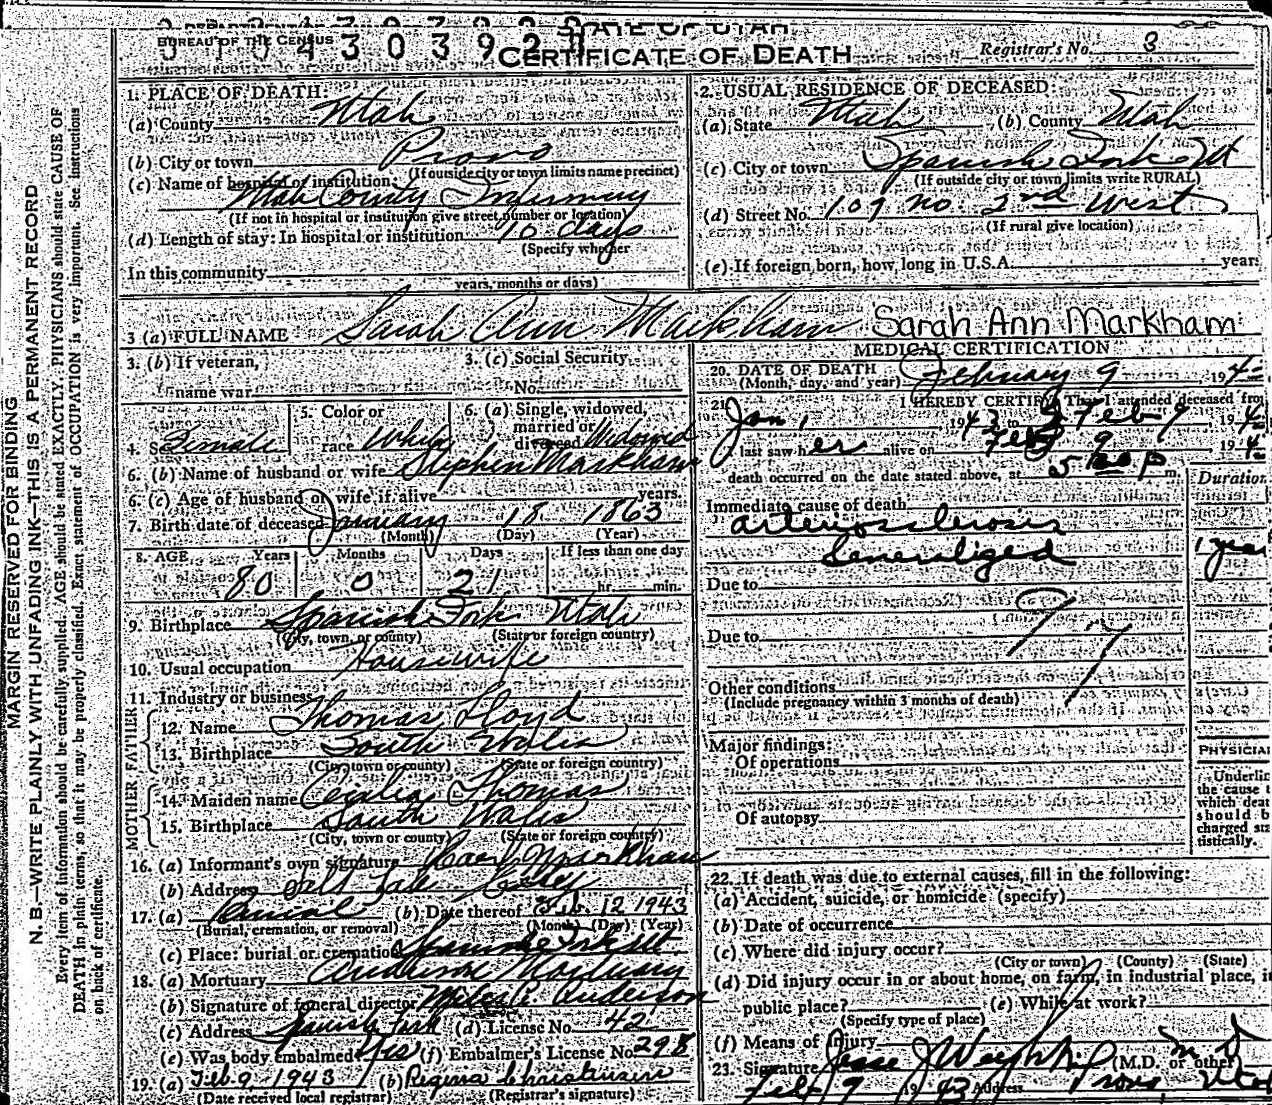 STATE OF UTAH
BUREAU OF THE CENSUS
CERTIFICATE OF DEATH
Registrar's No. 8
MARGIN RESERVED FOR BINDING
N. B.—WRITE PLAINLY WITH UNFADING INK—THIS IS A PERMANENT RECORD
Every item of information should be carefully supplied. AGE should be stated EXACTLY. PHYSICIANS should state CAUSE OF
DEATH in plain terms, so that it may be properly classified. Exact statement of OCCUPATION is very important. See instructions
on back of certificate.
1. PLACE OF DEATH:
(a) County Utah
(b) City or town Provo
(If outside city or town limits name precinct)
(c) Name of hospital or institution
Utah County Infirmary
(If not in hospital or institution give street number or location)
(d) Length of stay: In hospital or institution 10 days
(Specify whether
In this community
years, months or days)
2. USUAL RESIDENCE OF DECEASED:
(a) State Utah (b) County Utah
(c) City or town Spanish Fork Ut
(If outside city or town limits write RURAL)
(d) Street No. 109 No. 2nd West
(If rural give location)
(e) If foreign born, how long in U.S.A. years
3 (a) FULL NAME Sarah Ann Markham Sarah Ann Markham
3. (b) If veteran,
name war
3. (c) Social Security
No.
4. Sex Female
5. Color or
race White
6. (a) Single, widowed,
married or
divorced Widowed
6. (b) Name of husband or wife Stephen Markham
6. (c) Age of husband or wife if alive years.
7. Birth date of deceased January 18 1863
(Month) (Day) (Year)
8. AGE Years Months Days If less than one day
80 0 21 hr. min.
9. Birthplace Spanish Fork Utah
(City, town, or county) (State or foreign country)
10. Usual occupation Housewife
11. Industry or business
FATHER
12. Name Thomas Lloyd
13. Birthplace South Wales
(City town or county) (State or foreign country)
MOTHER
14. Maiden name Cecilia Thomas
15. Birthplace South Wales
(City, town or county) (State or foreign country)
16. (a) Informant's own signature Markham
(b) Address Salt Lake
17. (a) Burial (b) Date thereof Feb. 12 1943
(Burial, cremation, or removal) (Month) (Day) (Year)
(c) Place: burial or cremation Spanish Fork Ut
18. (a) Mortuary Anderson Mortuary
(b) Signature of funeral director Anderson
(c) Address Spanish Fork (d) License No. 42
(e) Was body embalmed Yes (f) Embalmer's License No. 298
19. (a) Feb 9, 1943 (b) Regina Christensen
(Date received local registrar) (Registrar's signature)
MEDICAL CERTIFICATION
20. DATE OF DEATH
(Month, day, and year) February 9, 194
21. I HEREBY CERTIFY That I attended deceased fro
Jan 1, 1943 to Feb 9 194
I last saw her alive on Feb 9 194
death occurred on the date stated above, at 5 P m.
Duration
Immediate cause of death
arteriosclerosis
Generalized 1 year
Due to
97
Due to
Other conditions
(Include pregnancy within 3 months of death)
Major findings:
Of operations
Of autopsy
PHYSICIAN
Underlin
the cause t
which deat
should b
charged sta
tistically.
22. If death was due to external causes, fill in the following:
(a) Accident, suicide, or homicide (specify)
(b) Date of occurrence
(c) Where did injury occur?
(City or town) (County) (State)
(d) Did injury occur in or about home, on farm, in industrial place, i
public place? (e) While at work?
(Specify type of place)
(f) Means of injury
23. Signature Jesse J Weight (M.D. or other) M D
Feb 9 1943 Address Provo Utah